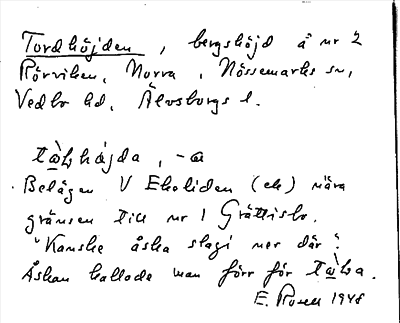 Tordhöjden, bergshöjd å nr 2
Rörviken, Norra, Nössemarks sn,
Vedbo hd, Älvsborgs l.
hájda, -a
Belägen V Ekeliden (ek) nära
gränsen till nr 1 Grättisbo.
"Kanske åska slagi ner där".
Åskan kallade man förr för
E. Rosell 1948